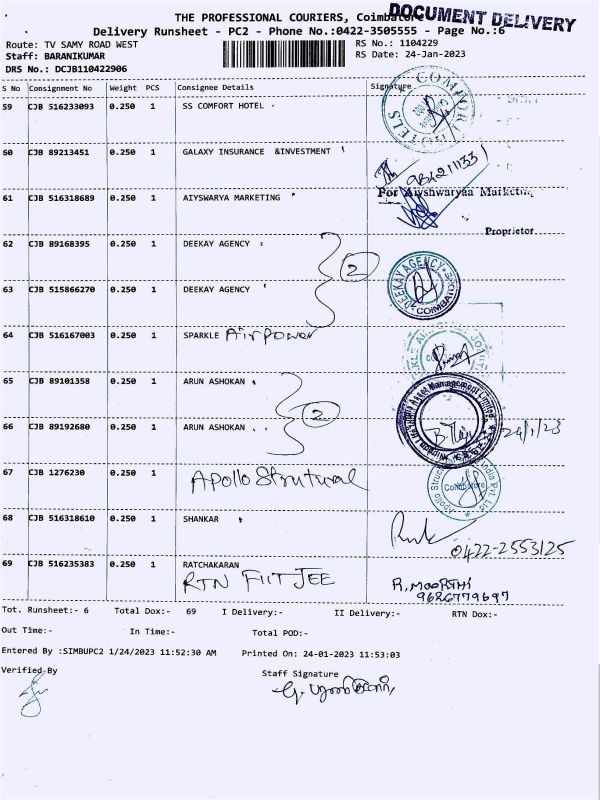 THE PROFESSIONAL COURIERS, Coimbatore
DOCUMENT DELIVERY
Delivery Runsheet - PC2 - Phone No.:0422-3505555 - Page No.:6
Route: TV SAMY ROAD WEST
RS No.: 1104229
Staff: BARANIKUMAR
RS Date: 24-Jan-2023
DRS No.: DCJB110422906
S No Consignment No Weight PCS Consignee Details Signature
59 CJB 516233093 0.250 1 SS COMFORT HOTEL
60 CJB 89213451 0.250 1 GALAXY INSURANCE &INVESTMENT
61 CJB 516318689 0.250 1 AIYSWARYA MARKETING
For Aiyshwaryaa Marketing
Proprietor
62 CJB 89168395 0.250 1 DEEKAY AGENCY
2
63 CJB 515866270 0.250 1 DEEKAY AGENCY
DEEKAY AGENCY
COIMBATORE
64 CJB 516167003 0.250 1 SPARKLE Airpower
65 CJB 89101358 0.250 1 ARUN ASHOKAN
2
66 CJB 89192680 0.250 1 ARUN ASHOKAN
24/1/23
67 CJB 1276230 0.250 1 Apollo Strutural
Coimbatore
68 CJB 516318610 0.250 1 SHANKAR
0422-2553125
69 CJB 516235383 0.250 1 RATCHAKARAN
RTN FIITJEE
R. MOORTHI
9686779697
Tot. Runsheet:- 6 Total Dox:- 69 I Delivery:- II Delivery:- RTN Dox:-
Out Time:- In Time:- Total POD:-
Entered By :SIMBUPC2 1/24/2023 11:52:30 AM Printed On: 24-01-2023 11:53:03
Verified By Staff Signature